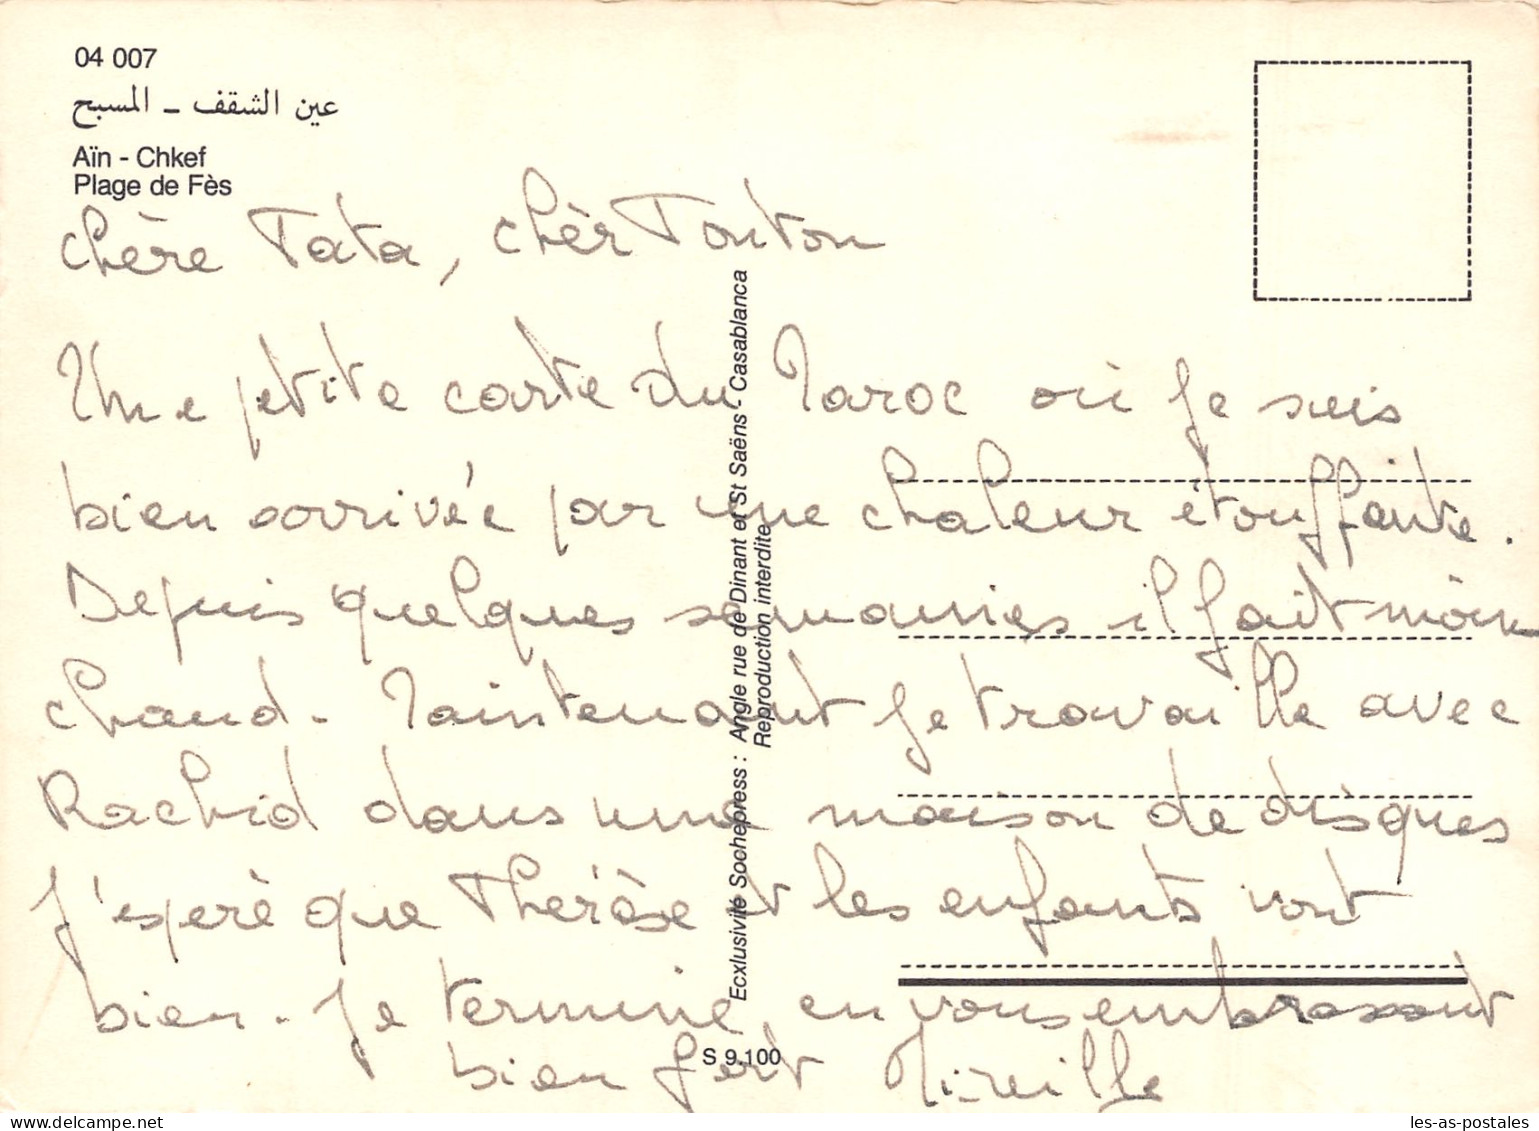 04 007
عين الشقف – المسبح
Aïn - Chkef
Plage de Fès
chère Tata, chèr Tonton
Une petite carte du Maroc où je suis
bien arrivée par une chaleur étouffante.
Depuis quelques semaines il fait moins
chaud. Maintenant je travaille avec
Rachid dans une maison de disques
J'esperè que Thérèse et les enfants vont
bien. Je termine en vous embrassant
bien fort Mireille
Ecxlusivite Sochepress : Angle rue de Dinant et St Saëns - Casablanca
Reproduction interdite
S 9.100
les-as-postales